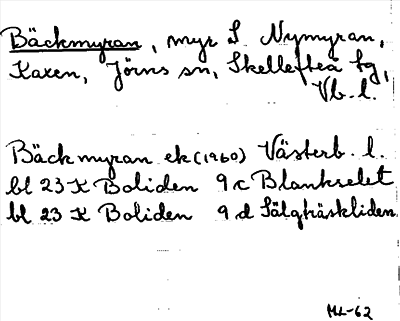 Bäckmyran, myr S Nymyran,
Kaxen, Jörns sn, Skellefteå tg,
Vb. l.
Bäckmyran ek (1960) Västerb. l.
bl 23 K Boliden 9 c Blankselet
bl 23 K Boliden 9 d Sälgträskliden
ML-62